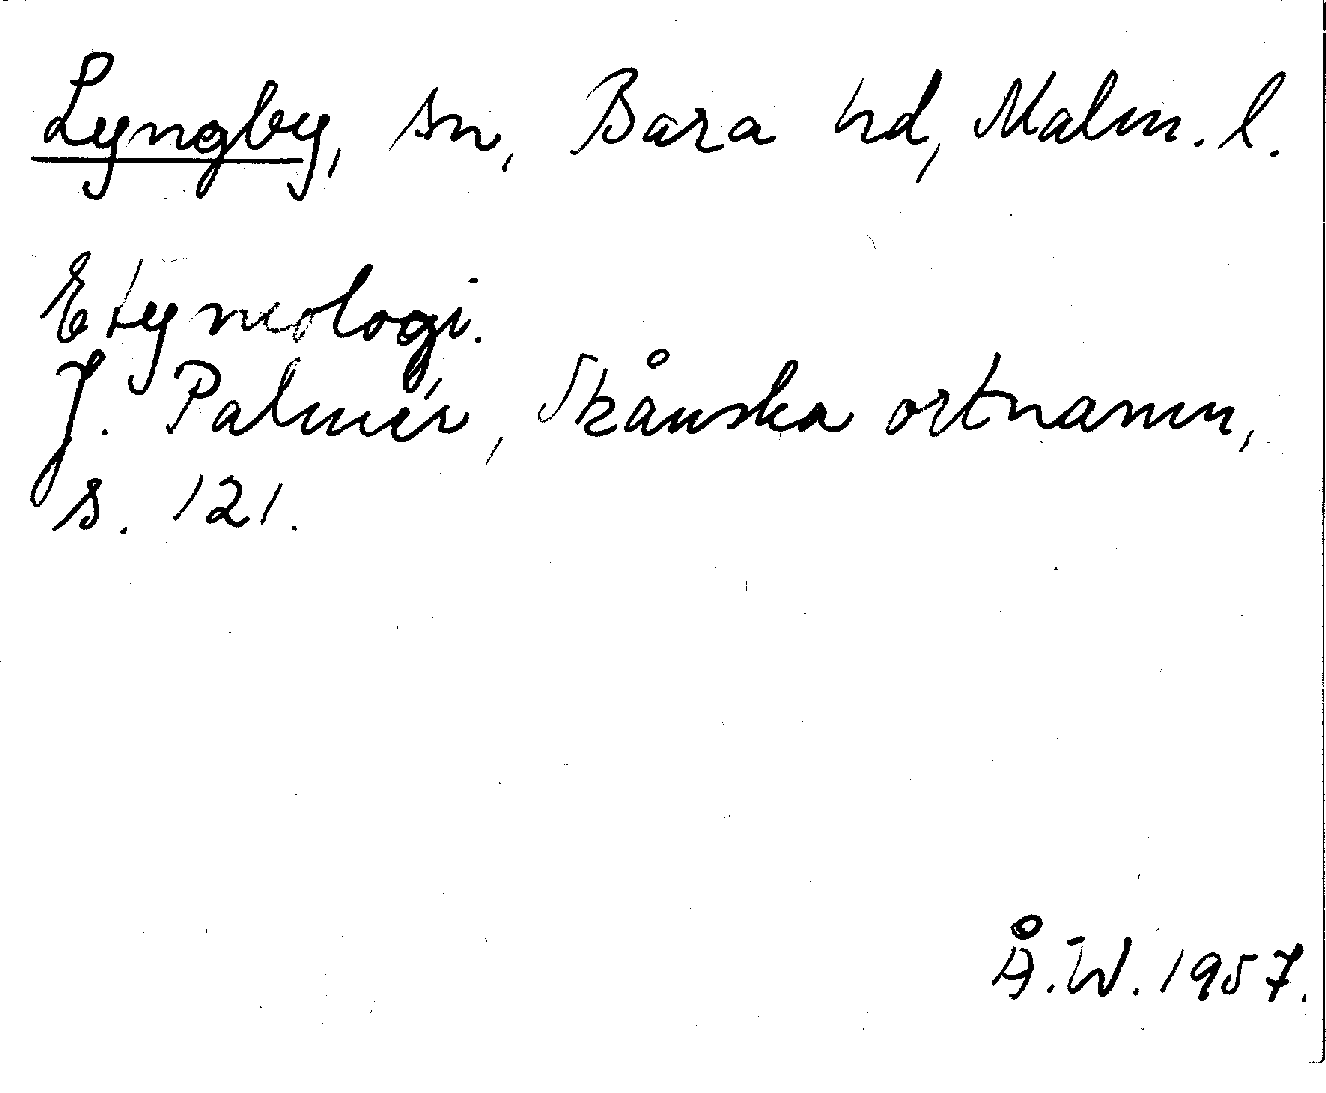 Lyngby, sn, Bara hd, Malm. l.
Etymologi.
J. Palmér, Skånska ortnamn,
s. 121.
Å.W. 1957.